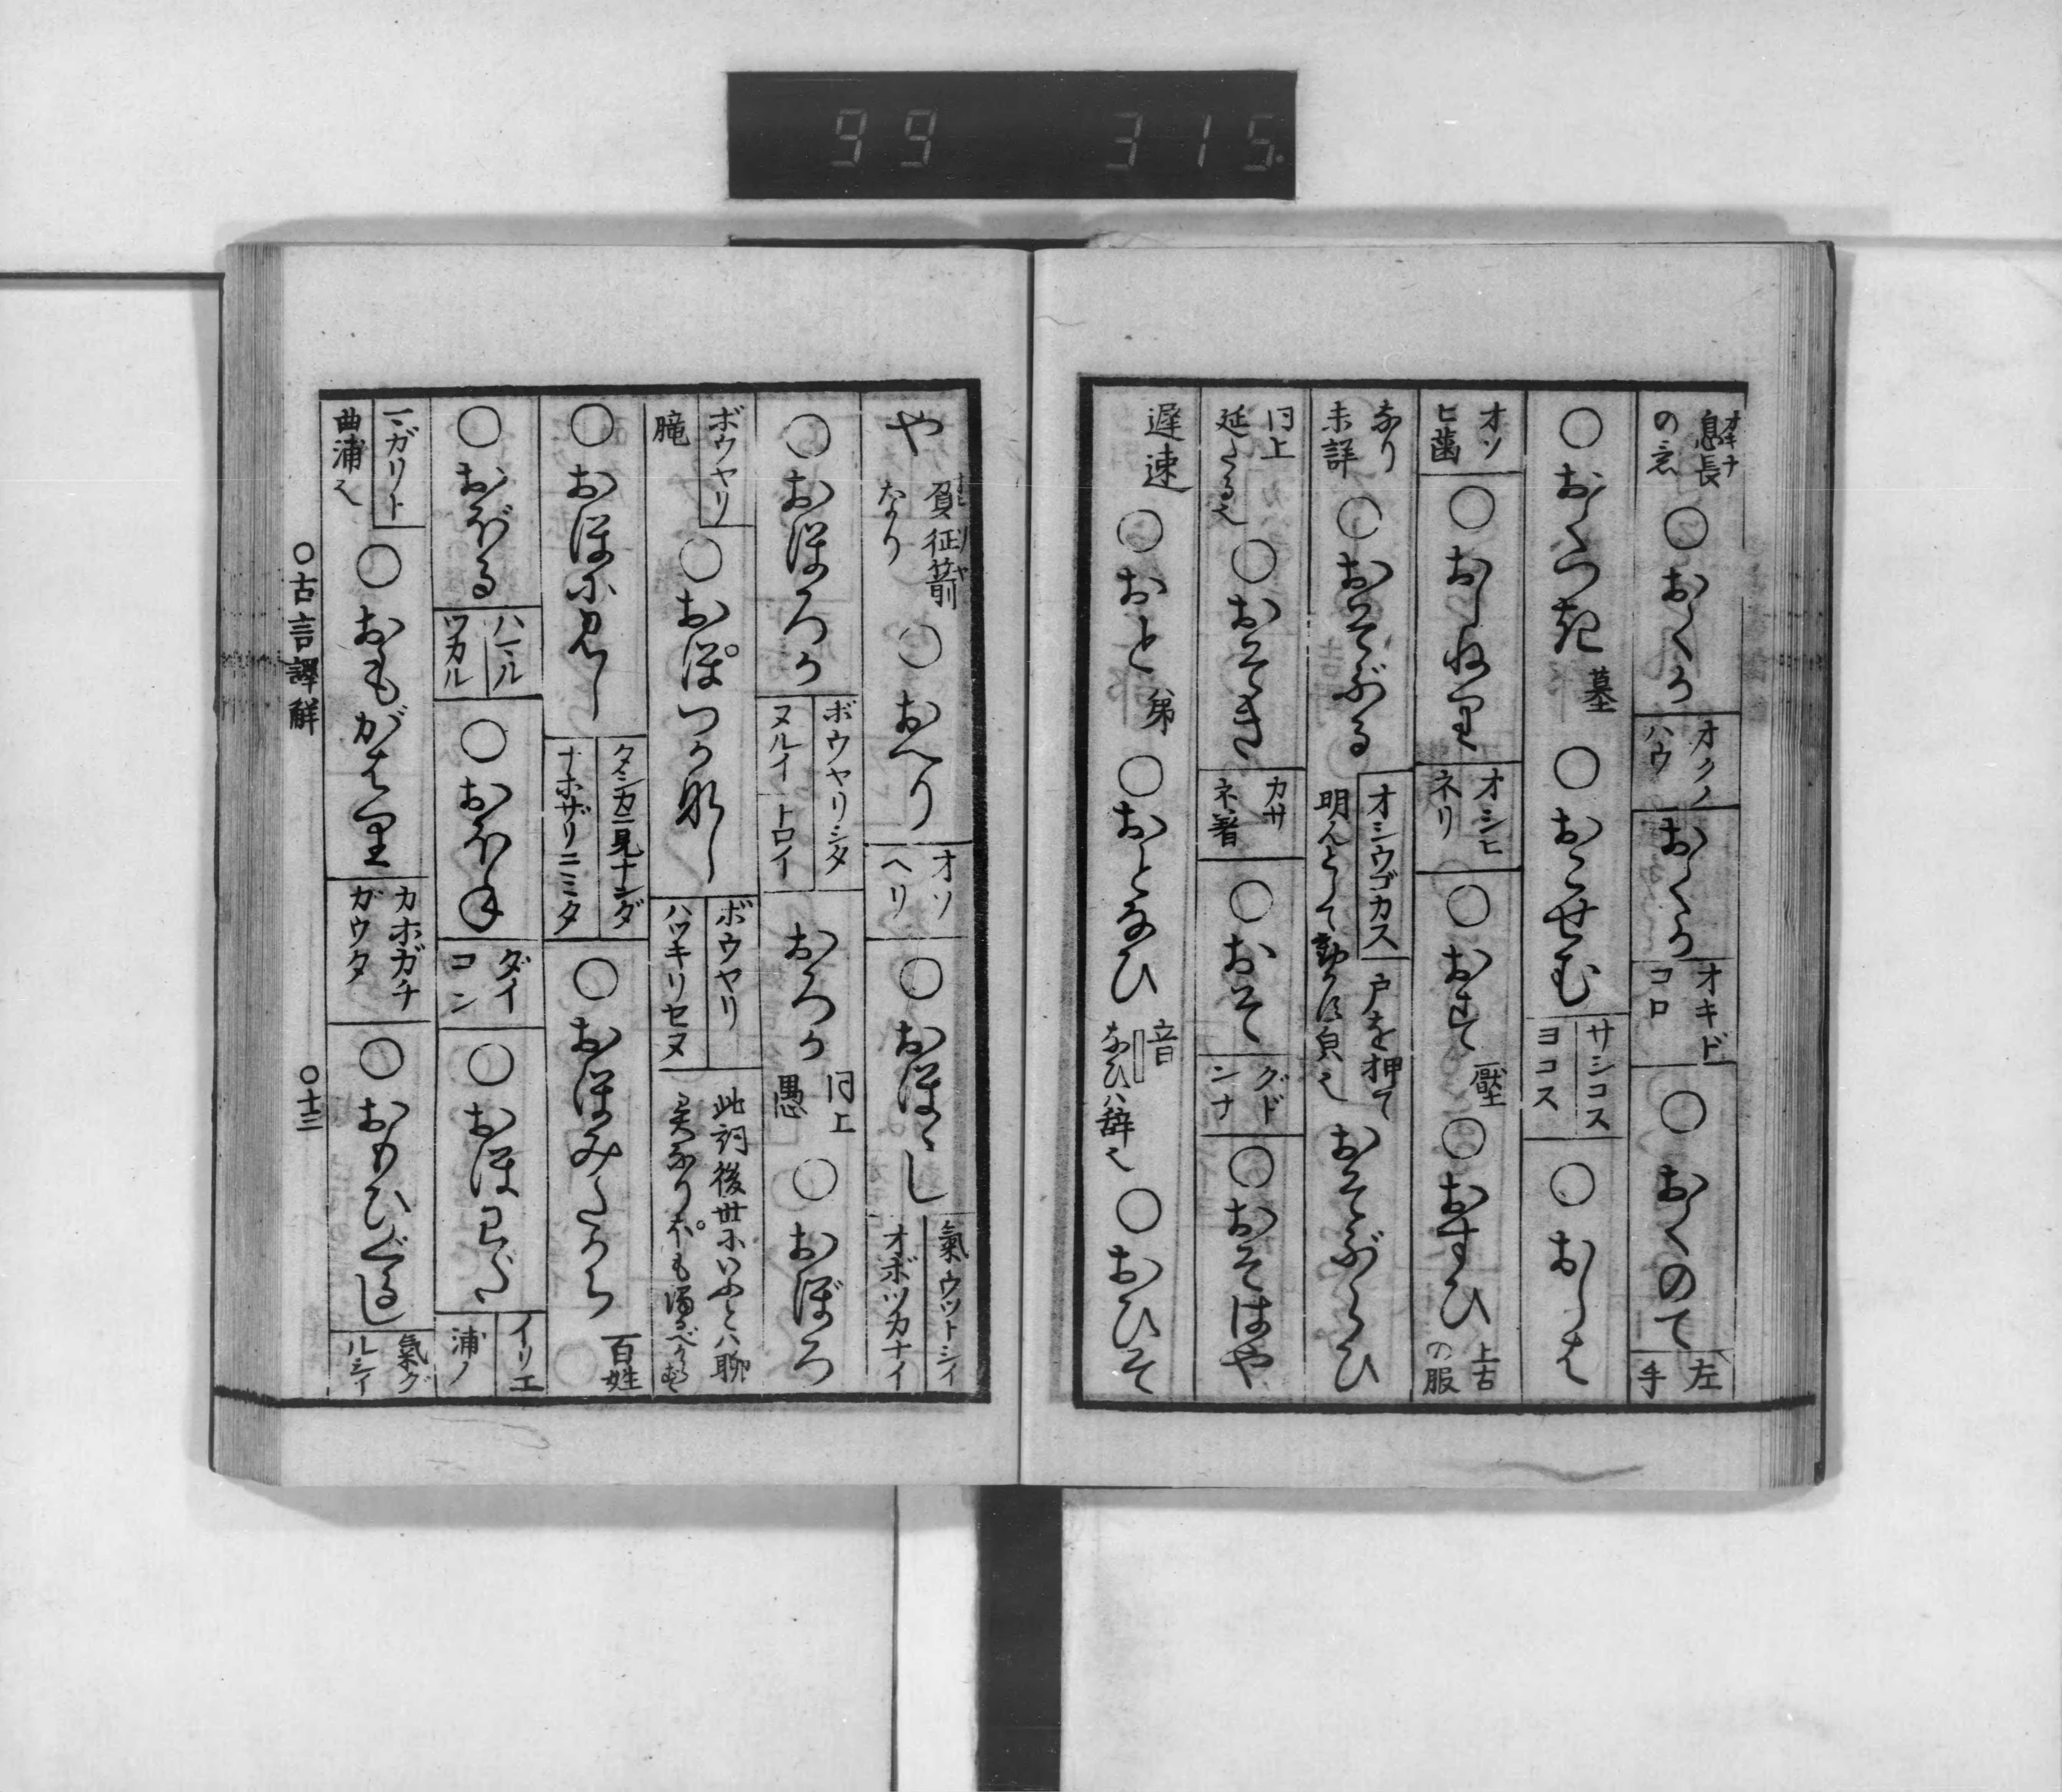 99 315
息長オキナの意 ○おくか オクノハウ おくか オキドコロ ○おくのて 左手
○おくつき 墓 ○おこせむ サシコスヨコス ○おしは
オソヒ齒 ○おしねり オシヒネリ ○おす 壓 ○おすひ 上古の服
なり未詳 ○おそぶる オシウゴカス 戸を押て明んとして動かす皃也 おそぶらひ
同上延たる也 ○おそき カサネ著 ○おそ グドンナ ○おそはや
遲速 ○おと 弟 ○おとなひ 音なひハ辞也 ○おひそ
や 負征箭なり ○おへり オソヘリ ○おほゝし 氣ウットシイオボツカナイ
○おほろか ボウヤリシタヌルイトロイ おろか 同上愚 ○おぼろ
ボウヤリ朧 ○おぽつか那し ボウヤリハッキリセヌ 此詞後世にいふとハ聊
○おほに見し タシカニ見ナンダナホザリニミタ ○おほみたから 百姓
○おぼる ハマルワカル ○おほね ダイコン ○おほわだ イリエ浦ノ
マガリト曲浦也 ○おもがはり カホガチガウタ ○おもひぐるし 氣グルシイ
○古言譯解 ○十三